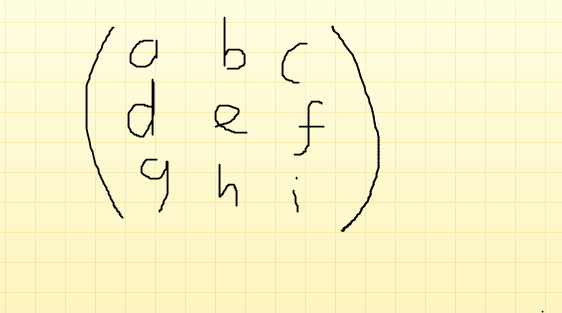 a b c
d e f
g h i